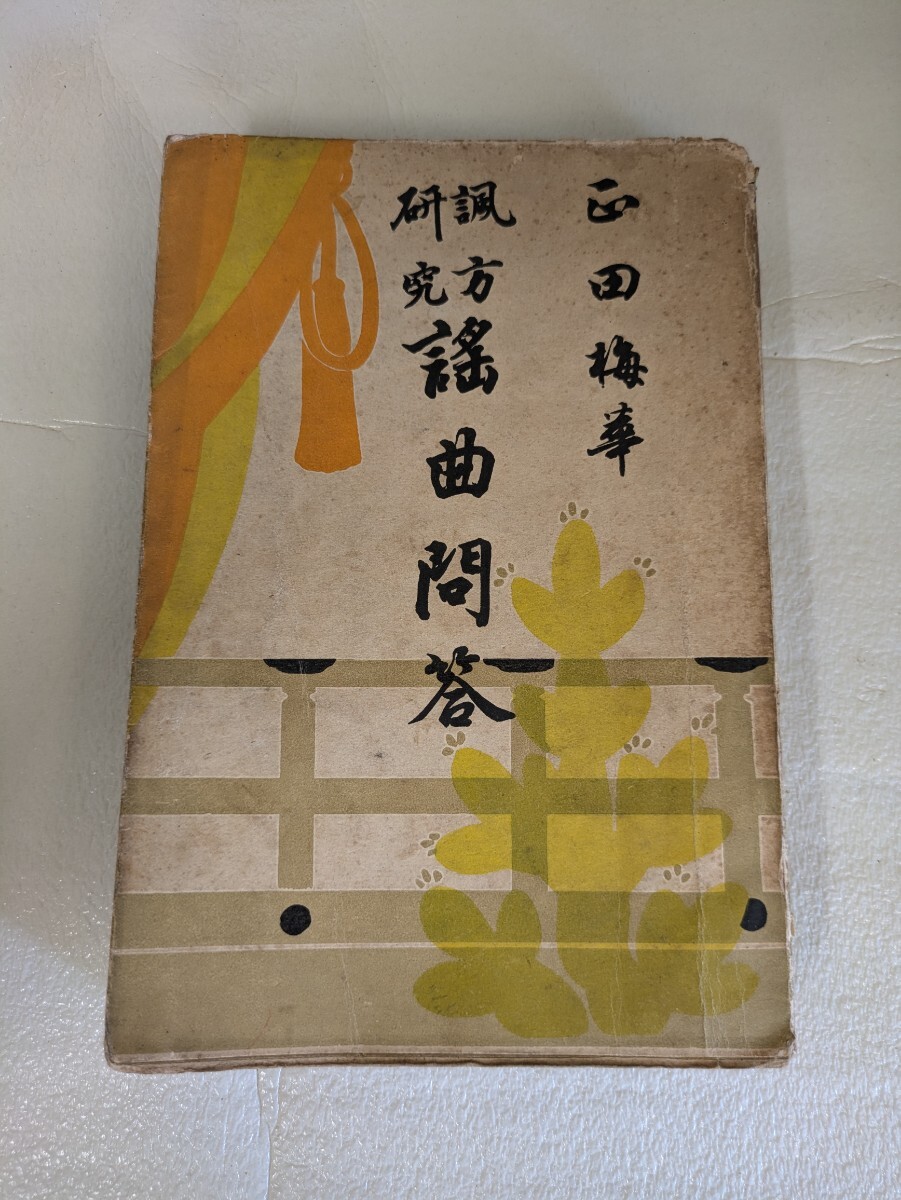 正田梅華
諷方
研究
謡曲問答